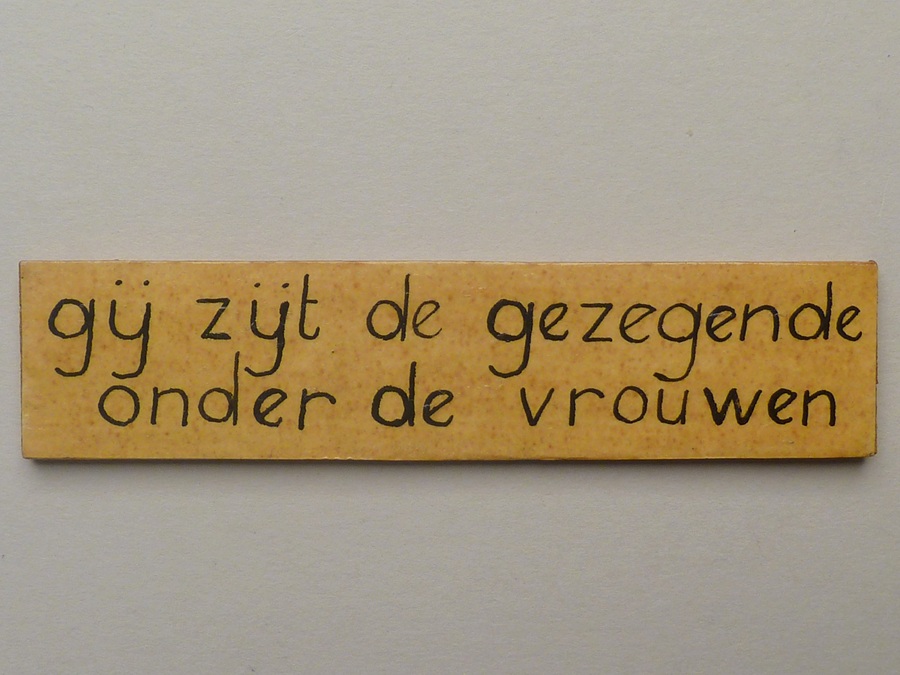 gij zijt de gezegende
onder de vrouwen